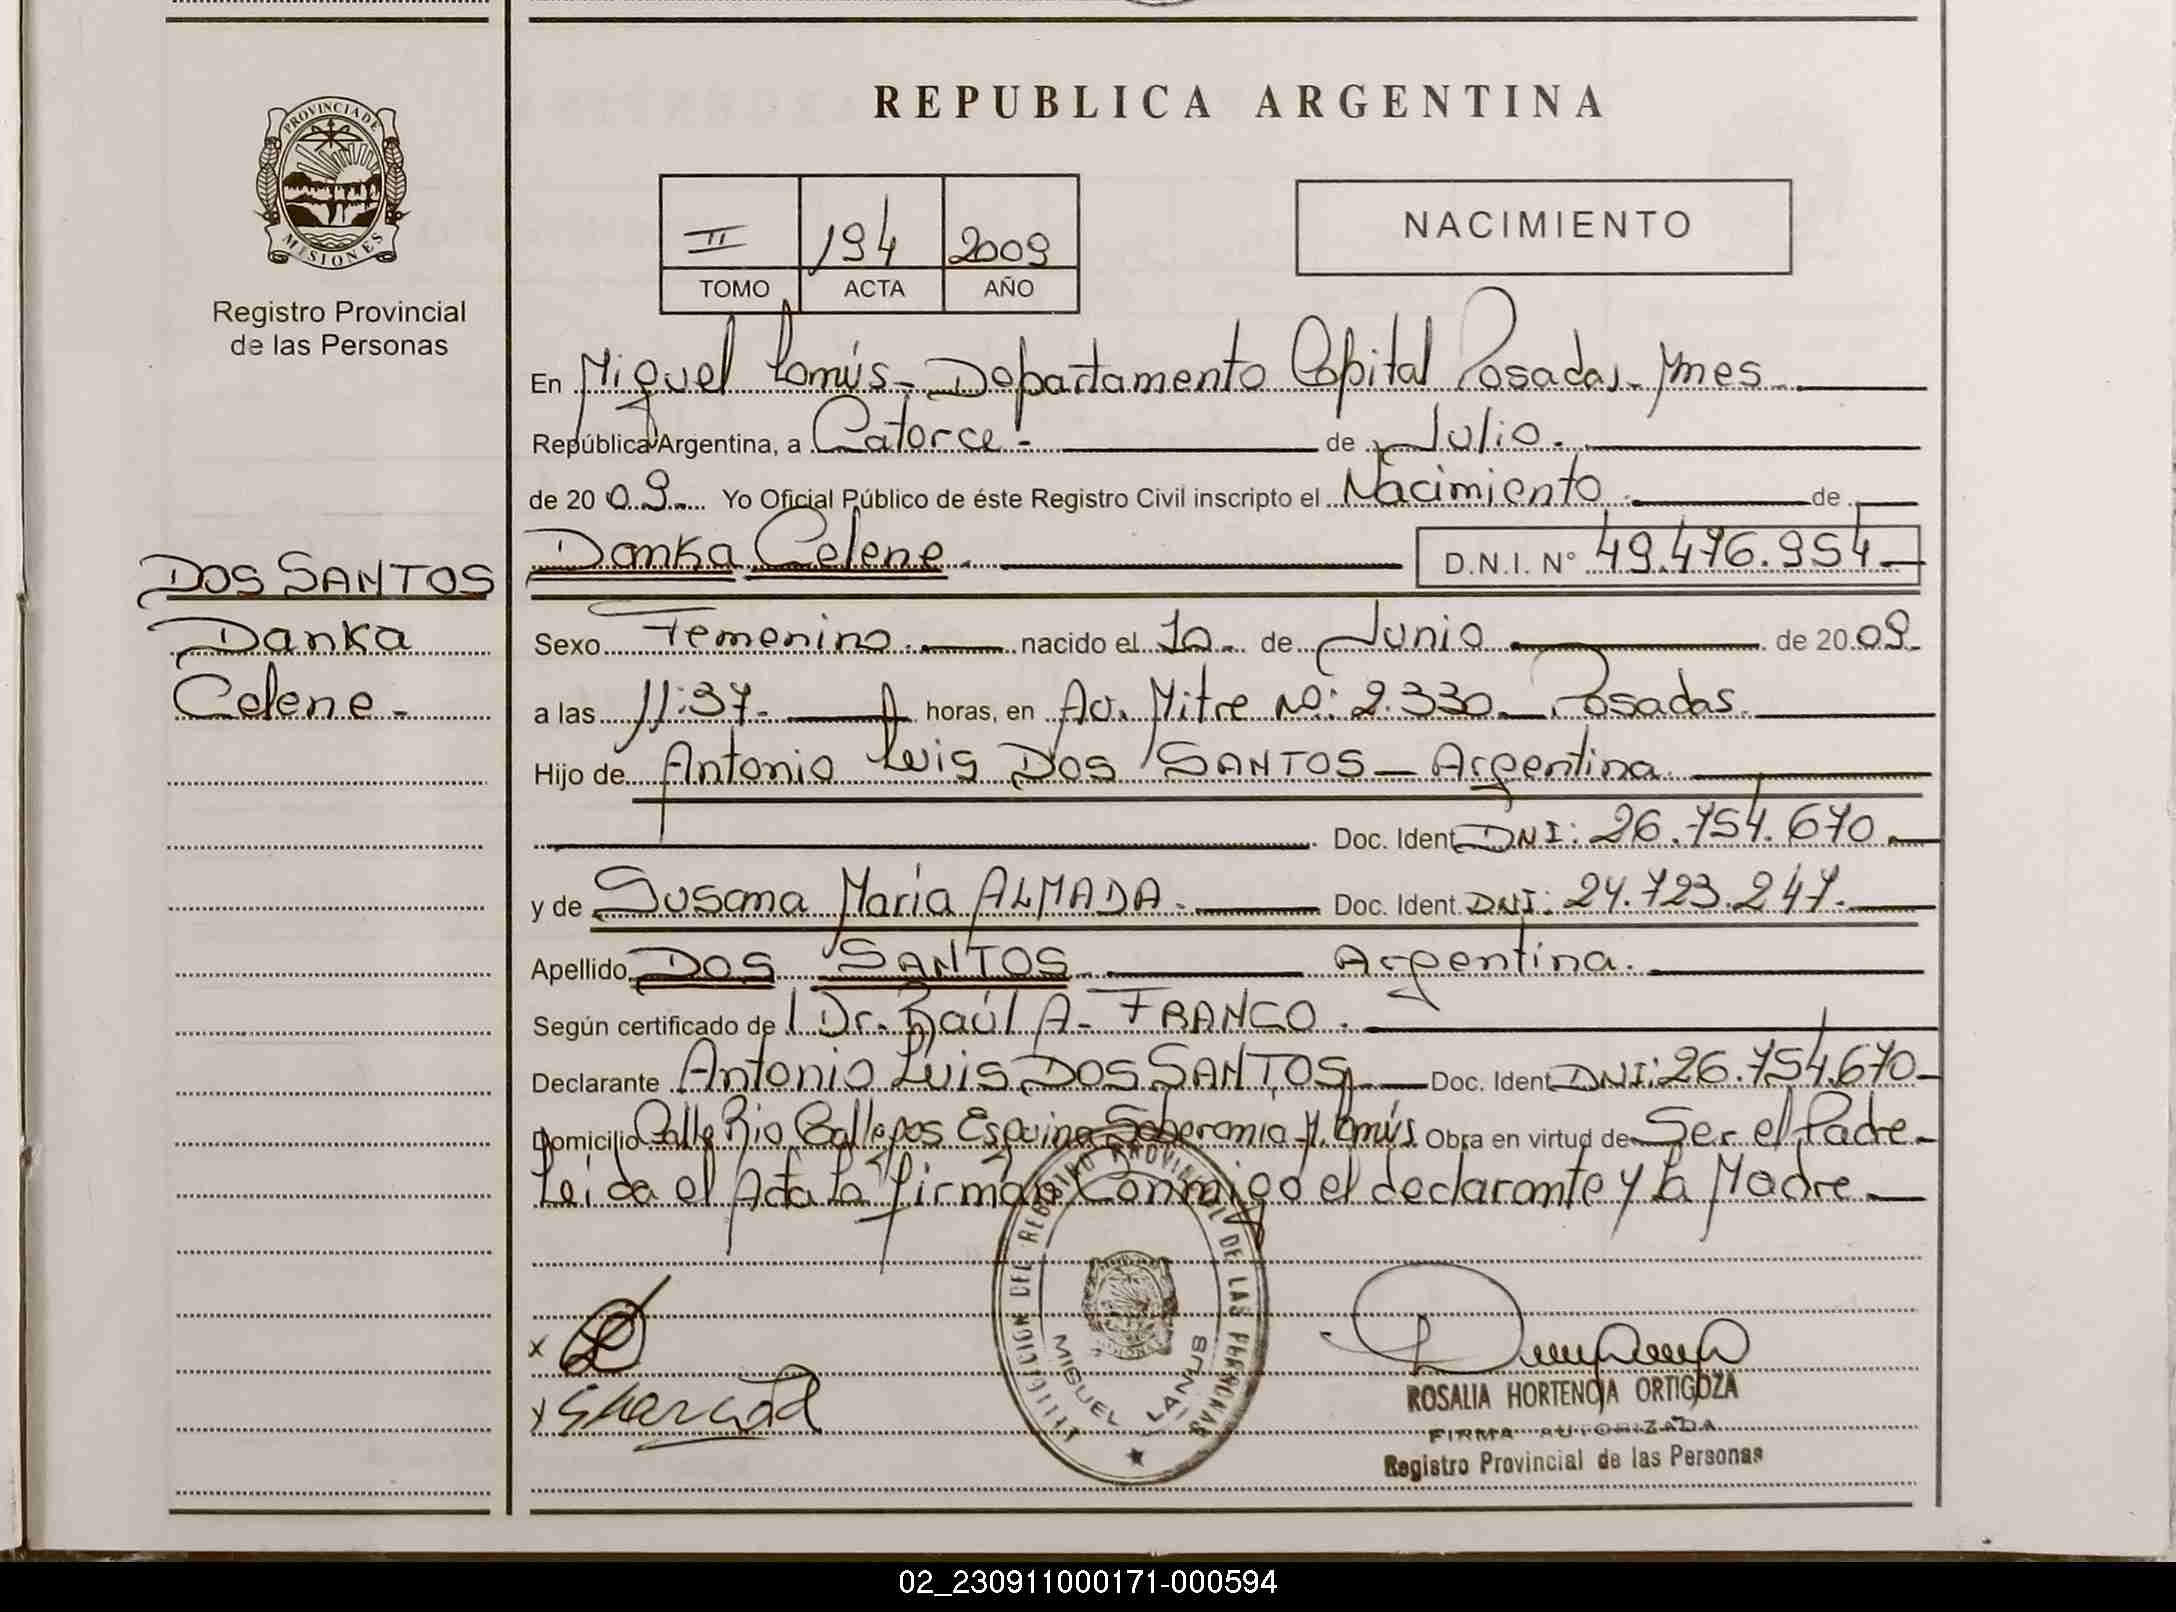 REPUBLICA ARGENTINA
PROVINCIA DE
MISIONES
Registro Provincial
de las Personas
II 194 2009
TOMO ACTA AÑO
NACIMIENTO
En Miguel Lanús - Departamento Capital Posadas - Mnes
República Argentina, a Catorce - de Julio.
de 20 09. Yo Oficial Público de éste Registro Civil inscripto el Nacimiento de
Danka Celene. D.N.I. N° 49.476.954
DOS SANTOS
Danka
Celene -
Sexo Femenino. nacido el 10 de Junio de 20 09.
a las 11:37. horas, en Av. Mitre No: 2.330 - Posadas.
Hijo de Antonio Luis DOS SANTOS - Argentina
Doc. Ident. DNI: 26.754.670
y de Susana María ALMADA. Doc. Ident. DNI: 24.723.247.
Apellido DOS SANTOS Argentina.
Según certificado de Dr. Raúl A. FRANCO.
Declarante Antonio Luis DOS SANTOS Doc. Ident. DNI: 26.754.670
Domicilio Calle Rio Gallegos Esquina Soberania M. Lanús Obra en virtud de Ser el Padre -
Leida el Acta la firman Conmigo el declarante y la Madre
DEL REGISTRO PROVINCIAL DE LAS PERSONAS
MIGUEL LANUS
x
ROSALIA HORTENCIA ORTIGOZA
FIRMA AUTORIZADA
Registro Provincial de las Personas
02_230911000171-000594